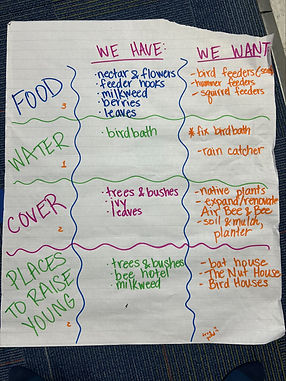 WE HAVE:
WE WANT
FOOD
3
· nectar & flowers
· feeder hooks
· milkweed
· berries
· leaves
- bird feeders (seed)
- hummer feeders
- squirrel feeders
WATER
1
· birdbath
* fix birdbath
- rain catcher
COVER
2
· trees & bushes
· ivy
· leaves
- native plants
- expand/renovate
Air Bee & Bee
- soil & mulch,
planter
PLACES
TO RAISE
YOUNG
2
· trees & bushes
· bee hotel
· milkweed
- bat house
- The Nut House
- Bird Houses